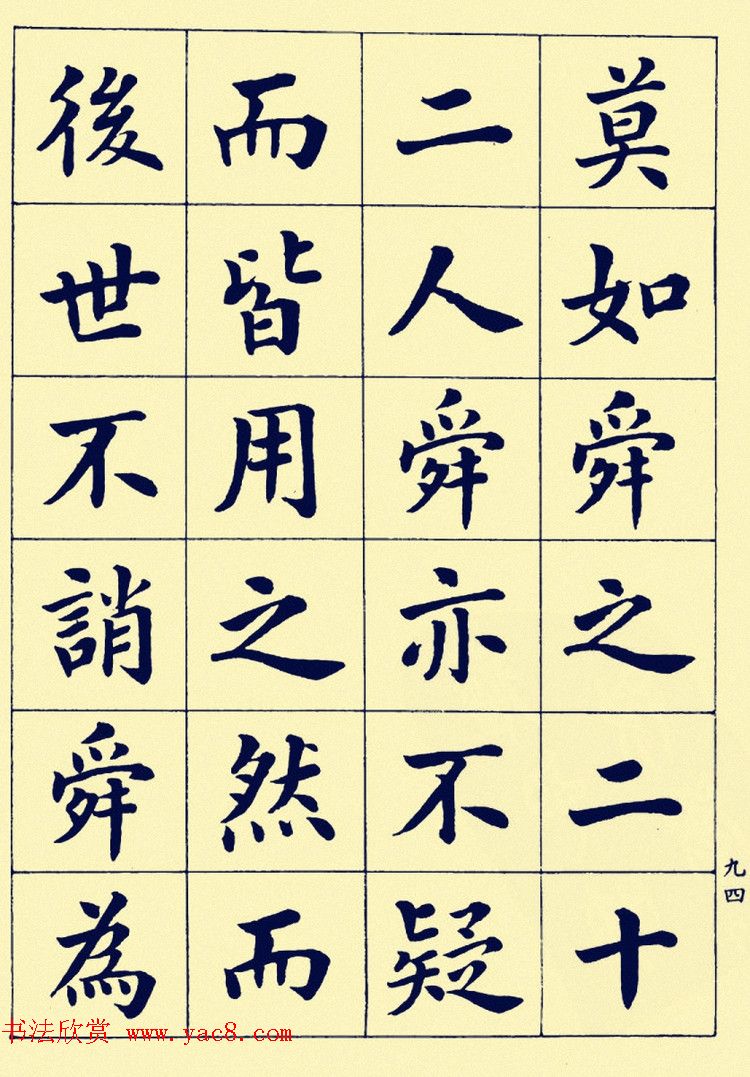 莫如舜舜之二十
二人舜亦不疑
而皆用之然而
後世不誚舜為
九四
书法欣赏 www.yac8.com